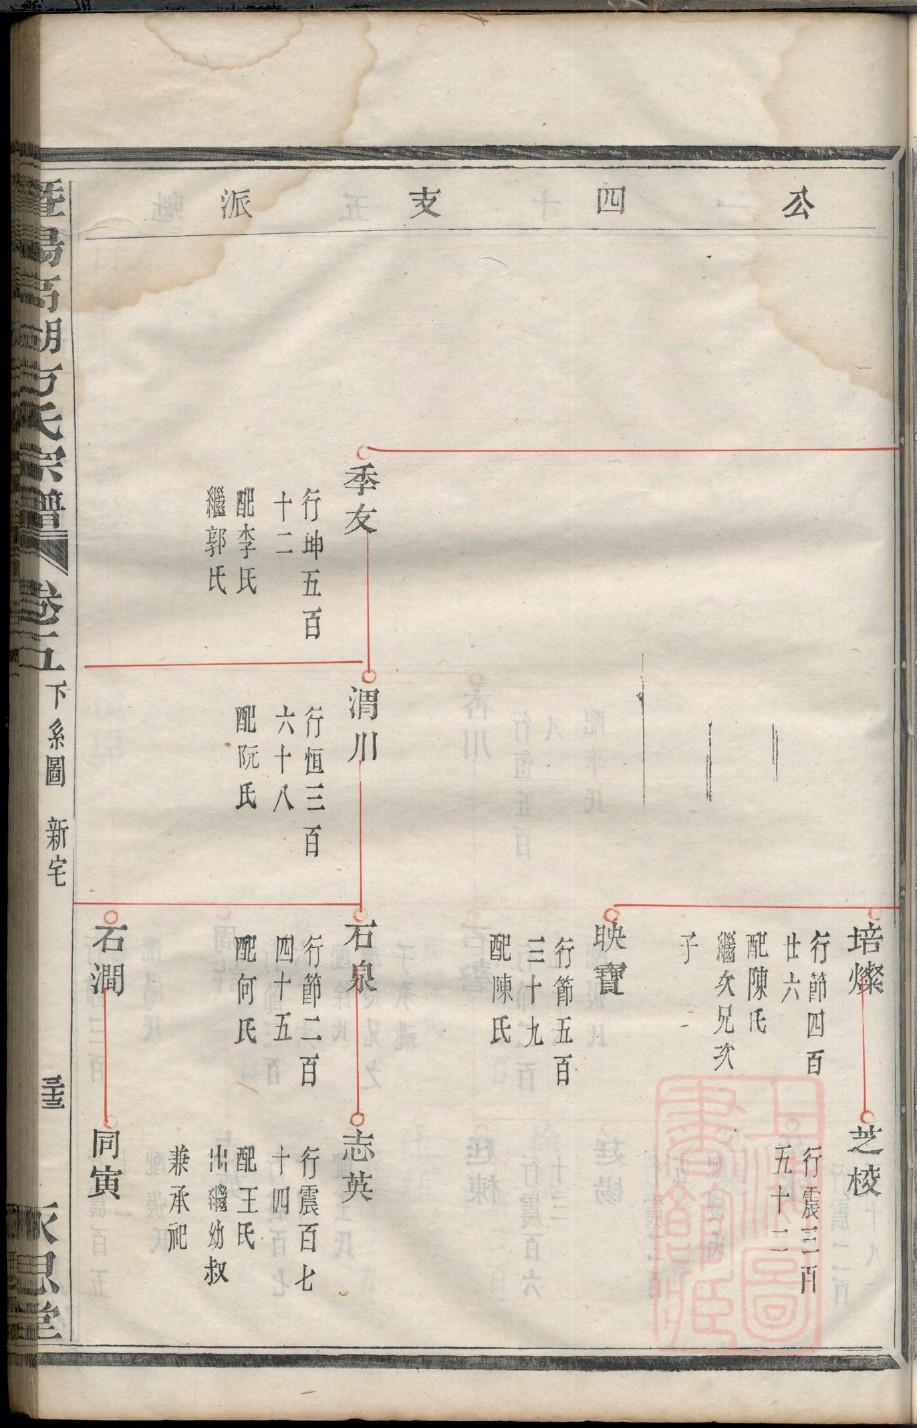 公四支派
季友
行坤五百
十二
配李氏
繼郭氏
渭川
行恒三百
六十八
配阮氏
培燦
行節四百
廿六
配陳氏
繼次兄次
子
映寶
行節五百
三十九
配陳氏
石泉
行節二百
四十五
配何氏
石澗
芝棱
行震三百
五十二
志英
行震百七
十四
配王氏
出繼幼叔
兼承祀
同寅
暨陽高湖方氏宗譜
卷五
下系圖 新宅
永思堂